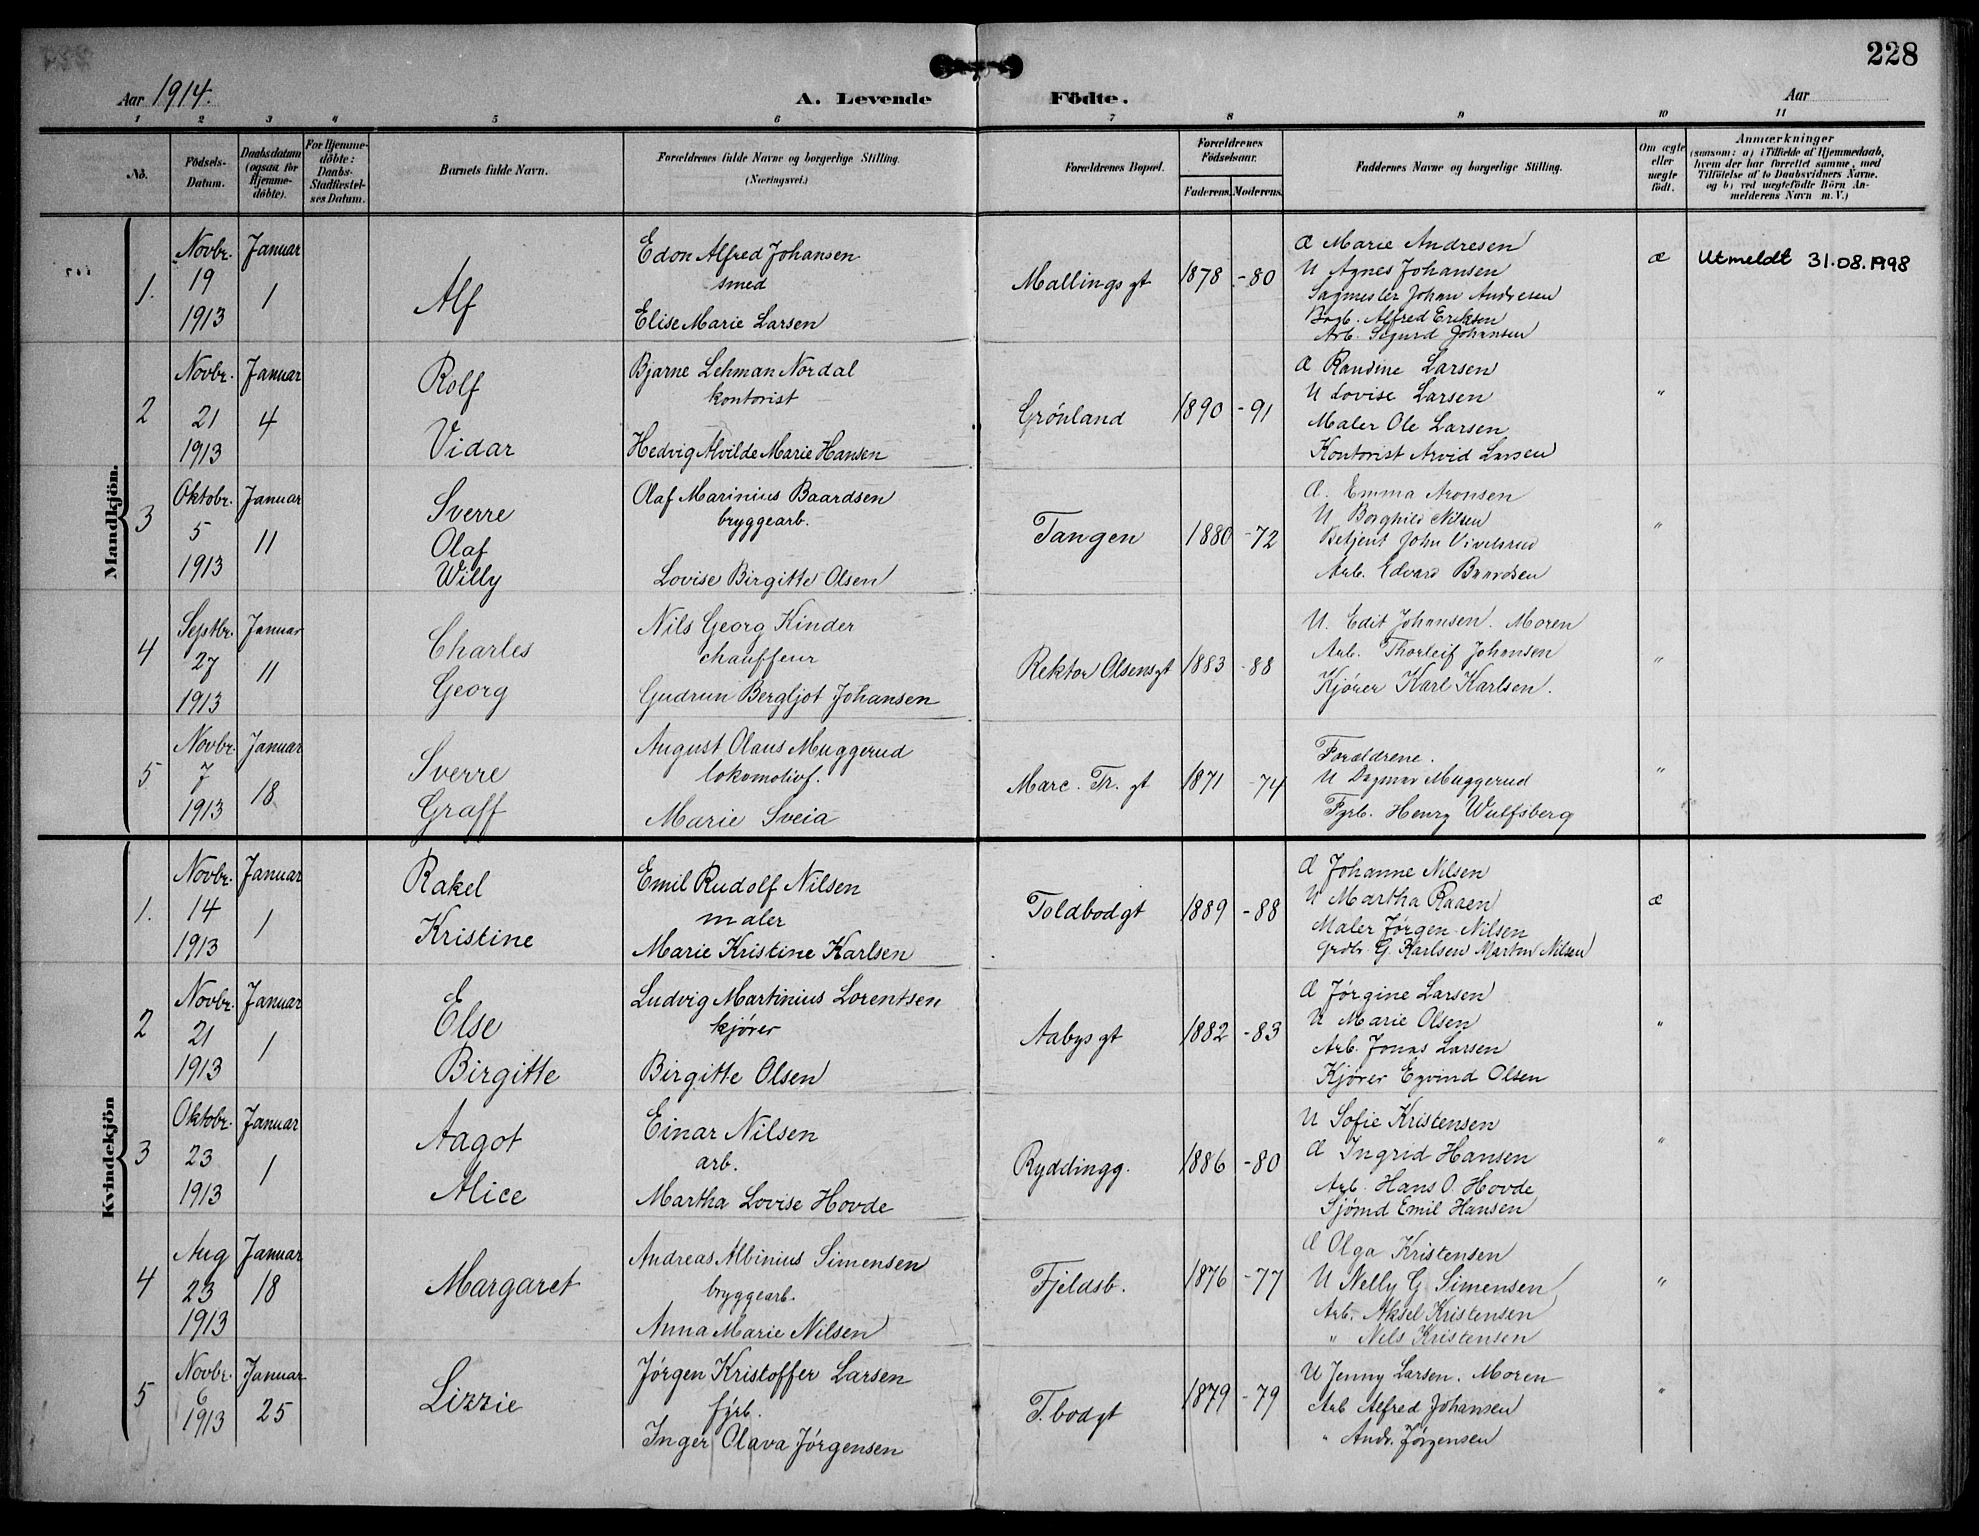 228
Aar 1914.
A. Levende Födte.
Aar
1 2 3 4 5 6 7 8 9 10 11
No.
Födsels-Datum.
Daabsdatum (ogsaa for Hjemme-döbte).
For Hjemme-döbte: Daabs-Stadfæstel-ses Datum.
Barnets fulde Navn.
Forældrenes fulde Navne og borgerlige Stilling.
(Næringsvei.)
Forældrenes Bopæl.
Forældrenes Födselsaar.
Faderens. Moderens.
Faddernes Navne og borgerlige Stilling.
Om ægte eller uægte födt.
Anmærkninger
(saasom: a) i Tilfælde af Hjemmedaab, hvem der har forrettet samme, med Tilföielse af to Daabsvidners Navne. og b) ved uægtefödte Börn An-melderens Navn m. V.)
Mandkjön.
1.
Novbr. 19 1913
Januar 1
Alf
Edon Alfred Johansen
smed
Elise Marie Larsen
Mallings gt
1878 -80
Æ Marie Andresen
U Agnes Johansen
Sagmester Johan Andresen
Alfred Eriksen
Arb. Sigurd Johansen
æ
Utmeldt 31.08.1998
2
Novbr. 21 1913
Januar 4
Rolf
Vidar
Bjarne Lehman Nordal
kontorist
Hedvig Alvilde Marie Hansen
Grönland
1890 -91
Æ Randine Larsen
U Lovise Larsen
Maler Ole Larsen
Kontorist Arvid Larsen
"
3
Oktobr. 5 1913
Januar 11
Sverre
Olaf
Willy
Olaf Marinius Baardsen
bryggearb.
Lovise Birgitte Olsen
Tangen
1880 -72
Æ. Emma Aronsen
U Borghild Nilsen
Betjent John
Arb. Edvard Baardsen
"
4
Septbr. 27 1913
Januar 11
Charles
Georg
Nils Georg Kinder
chauffeur
Gudrun Bergljot Johansen
Rektor Olsensgt
1883 -88
U. Edit Johansen. Moren
Arb. Thorleif Johansen
Kjörer Karl Karlsen.
"
5
Novbr. 7 1913
Januar 18
Sverre
Graff
August Olaus Muggerud
lokomotivf.
Marie Sveia
Marc. Tr. gt
1871 -74
Forældrene.
U Dagmar Muggerud
Fyrb. Henry Wulfsberg
"
Kvindekjön
1.
Novbr. 14 1913
Januar 1
Rakel
Kristine
Emil Rudolf Nilsen
maler
Marie Kristine Karlsen
Toldbodgt
1889 -88
Æ Johanne Nilsen
U Martha Raaen
Maler Jørgen Nilsen
G. Karlsen Nilsen
æ
2
Novbr. 21 1913
Januar 1
Else
Birgitte
Ludvig Martinius Lorentsen
kjører
Birgitte Olsen
Aabys gt
1882 -83
Æ Jørgine Larsen
U Marie Olsen
Arb. Jonas Larsen
Kjører Eyvind Olsen
"
3
Oktobr. 23 1913
Januar 1
Aagot
Alice
Einar Nilsen
arb.
Martha Lovise Hovde
Ryddingg.
1886 -80
U Sofie Kristensen
Æ Ingrid Hansen
Arb. Hans O. Hovde
Sjømd Emil Hansen
"
4
Aug 23 1913
Januar 18
Margaret
Andreas Albinius Simensen
bryggearb.
Anna Marie Nilsen
Fjeldsb.
1876 -77
Æ Olga Kristensen
U Nelly G. Simensen
Arb. Aksel Kristensen
" Nils Kristensen
"
5
Novbr. 6 1913
Januar 25
Lizzie
Jørgen Kristoffer Larsen
fyrb.
Inger Olava Jørgensen
T.bodgt
1879 -79
U Jenny Larsen. Moren
Arb Alfred Johansen
" Andr. Jørgensen
"